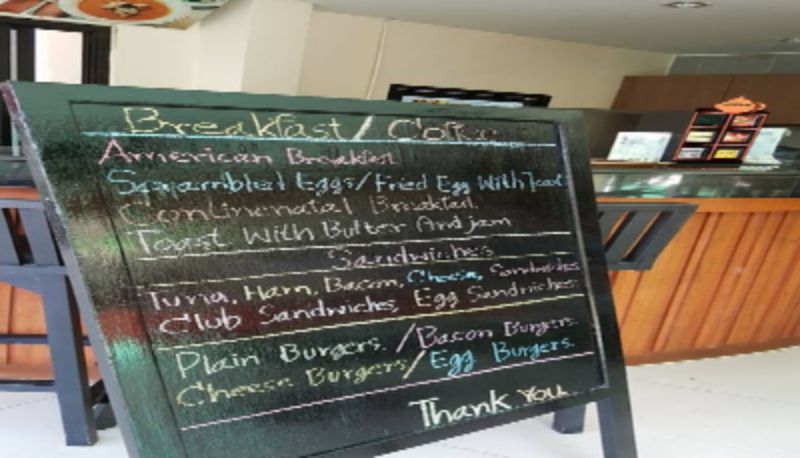 Breakfast / Coffee
American Breakfast
Sqyambled Eggs/Fried Egg With Toast
Continenatal Breakfast
Toast With Butter And jam
Sandwiches
Tuna, Ham, Bacon, Cheese, Sandwiches
Club Sandwiches, Egg Sandwiches
Plain Burgers. / Bacon Burgers.
Cheese Burgers/Egg Burgers.
Thank You